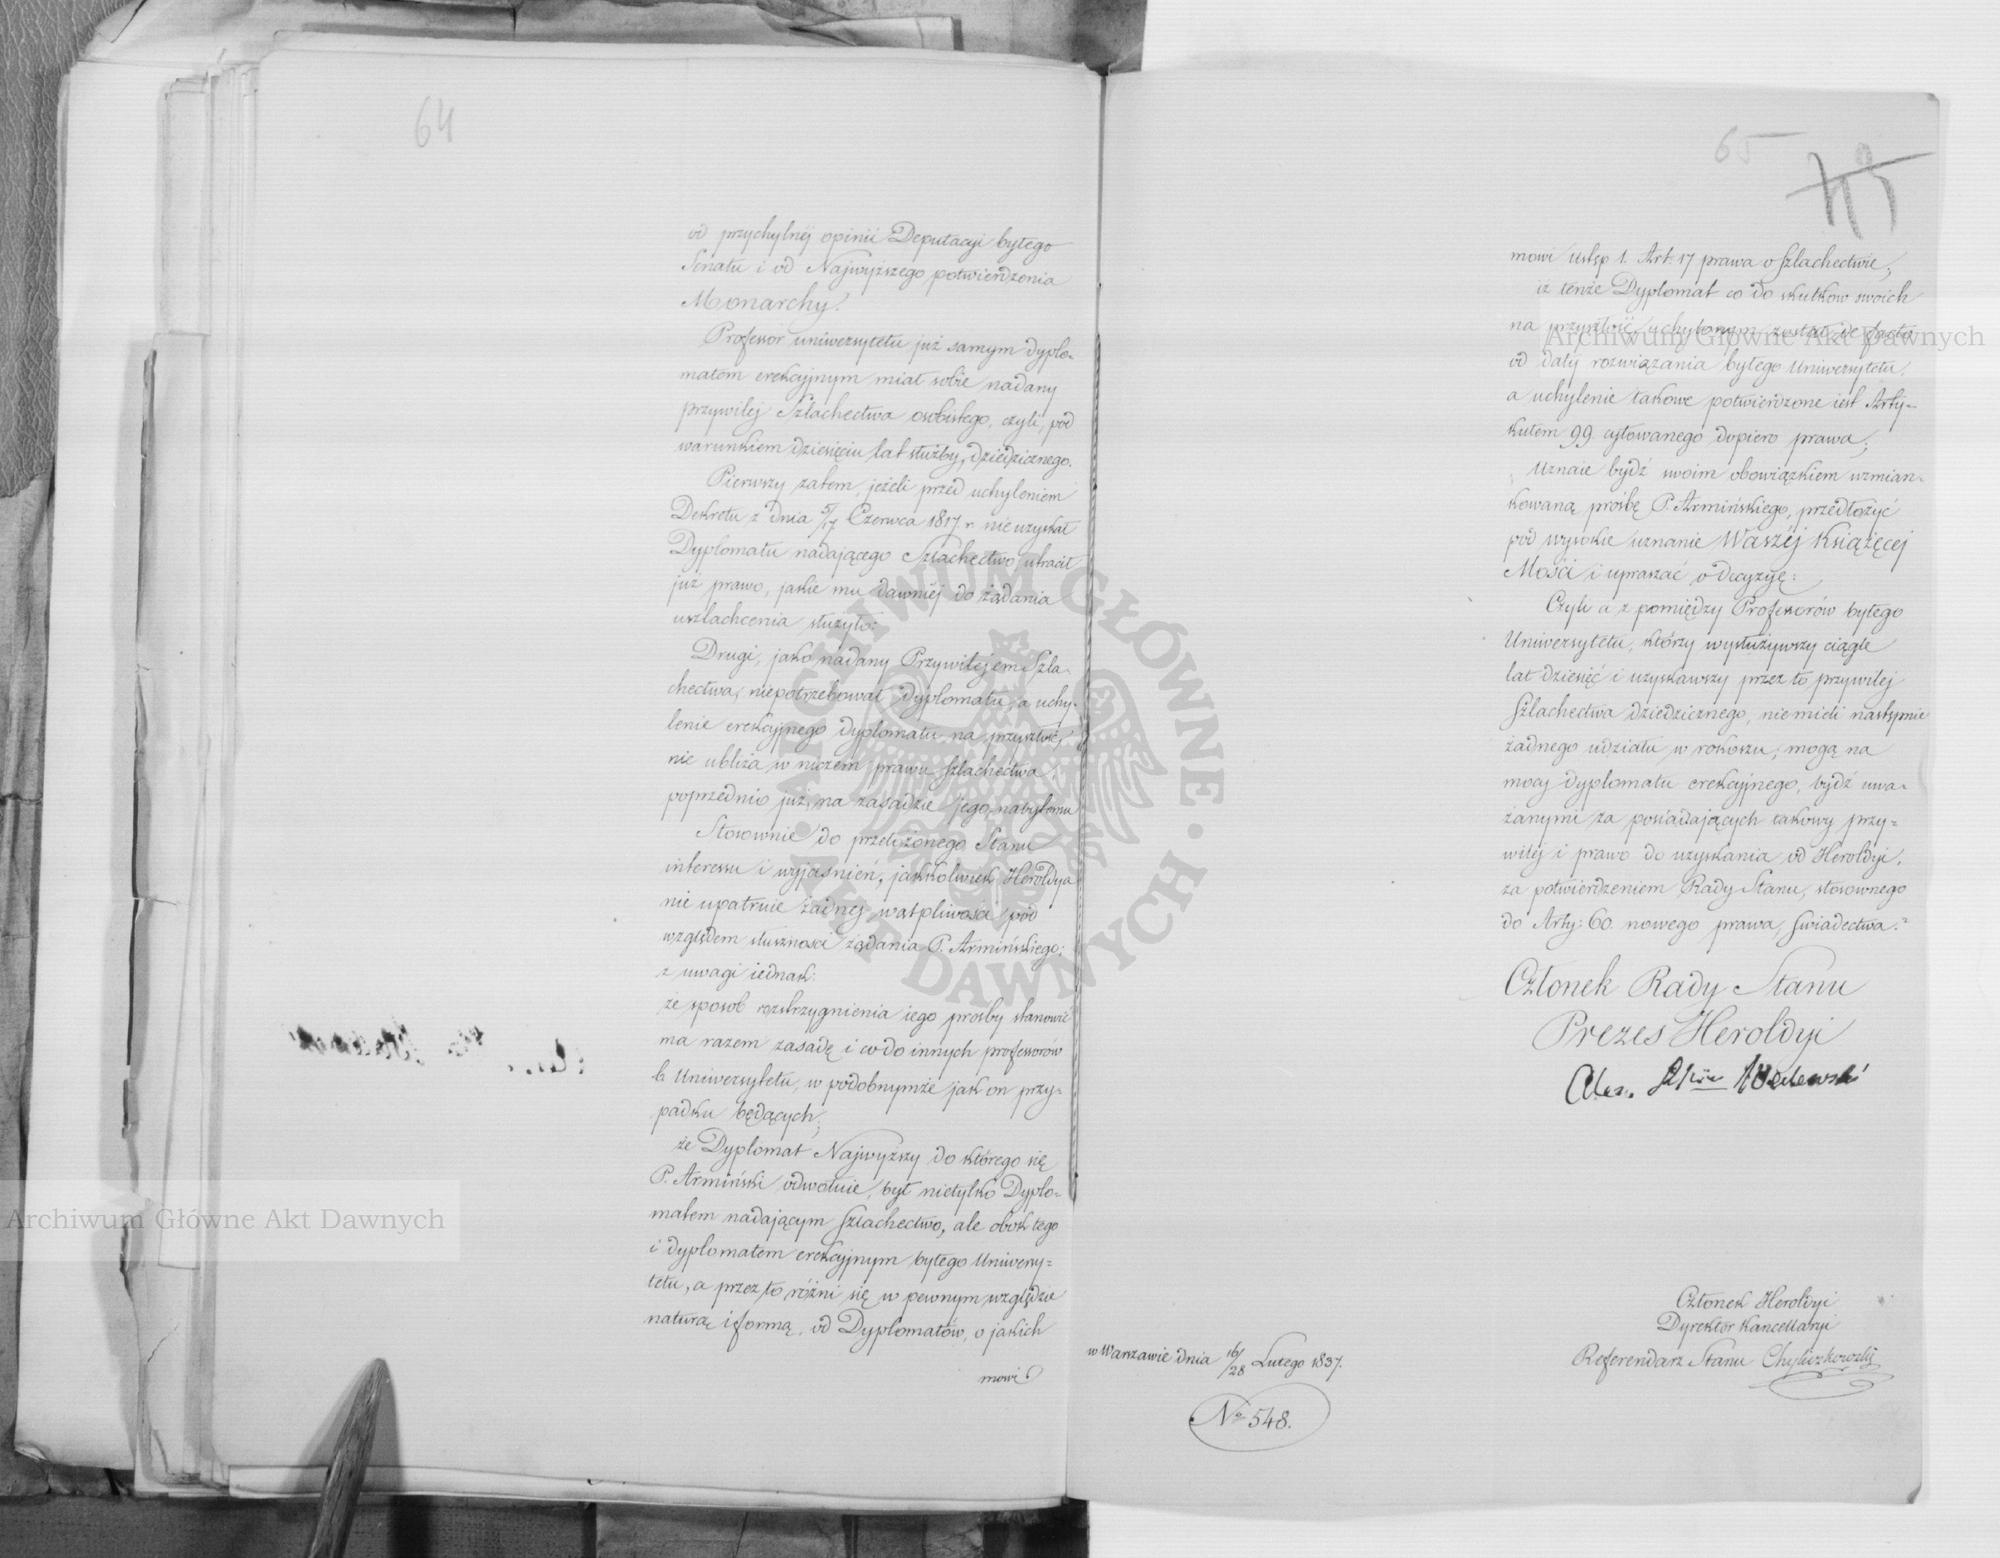 64
od przychylnéj opinii Deputacyi byłego
Senatu i od Najwyższego potwierdzenia
Monarchy.
Professor uniwersytetu już samym dyplo-
matem erekcyjnym miał sobie nadany
przywilej Szlachectwa osobistego, czyli, pod
warunkiem dziesięciu lat służby, dziedzicznego.
Pierwszy zatem, jeżeli przed uchyleniem
Dekretu z dnia 5/17 Czerwca 1817 r. nie uzyskał
Dyplomatu nadającego Szlachectwo, utracił
już prawo, jakie mu dawniéj do żądania
uszlachcenia służyło:
Drugi, jako nadany Przywilejem Szla-
chectwa, niepotrzebował dyplomatu, a uchy-
lenie erekcyjnego dyplomatu na przyszłość,
nie ubliża w niczem prawu szlachectwa,
poprzednio już, na zasadzie jego nabytemu
Stosownie do przełożonego Stanu
interessu i wyjaśnień, jakkolwiek Heroldya
nie upatruie żadnej wątpliwości pod
względem słuszności żądania P. Armińskiego;
z uwagi iednak:
że sposób rozstrzygnienia iego prośby stanowić
ma razem zasadę i co do innych professorów
b. Uniwersytetu, w podobnymże jak on przy-
padku będących;
że Dyplomat Najwyższy do którego się
P. Armiński odwołuie, był nietylko Dyplo-
matem nadającym Szlachectwo, ale obok tego
i dyplomatem erekcyjnym byłego Uniwersy-
tetu, a przez to różni się w pewnym względzie
naturą i formą, od Dyplomatów, o jakich
mowi
65
mowi ustęp 1. Art 17 prawa o Szlachectwie;
iż tenże Dyplomat co do skutkow swoich
na przyszłość, uchylonym został de facto
od daty rozwiązania byłego Uniwersytetu,
a uchylenie takowe potwierdzone iest Arty-
kułem 99 cytowanego dopiero prawa;
Uznaie bydź swoim obowiązkiem wzmian-
kowaną prośbę P. Armińskiego, przedłożyć
pod wysokie uznanie Waszéj Książęcej
Mości i upraszać o decyzyę:
Czyli a z pomiędzy Professorów byłego
Uniwersytetu, którzy wysłużywszy ciągle
lat dziesięć i uzyskawszy przez to przywilej
Szlachectwa dziedzicznego, nie mieli następnie
żadnego udziału w rokoszu, mogą na
mocy dyplomatu erekcyjnego, bydź uwa-
żanymi za posiadających takowy przy-
wilej i prawo do uzyskania od Heroldyi,
za potwierdzeniem Rady Stanu, stosownego
do Arty: 60 nowego prawa, Swiadectwa.
Członek Rady Stanu
Prezes Heroldyi
Członek Heroldyi
Dyrektor Kancellaryi
Referendarz Stanu Chyliczkowski
w Warszawie dnia 16/28 Lutego 1837.
No 548.
Archiwum Główne Akt Dawnych
Archiwum Główne Akt Dawnych
ARCHIWUM GŁÓWNE
AKT DAWNYCH